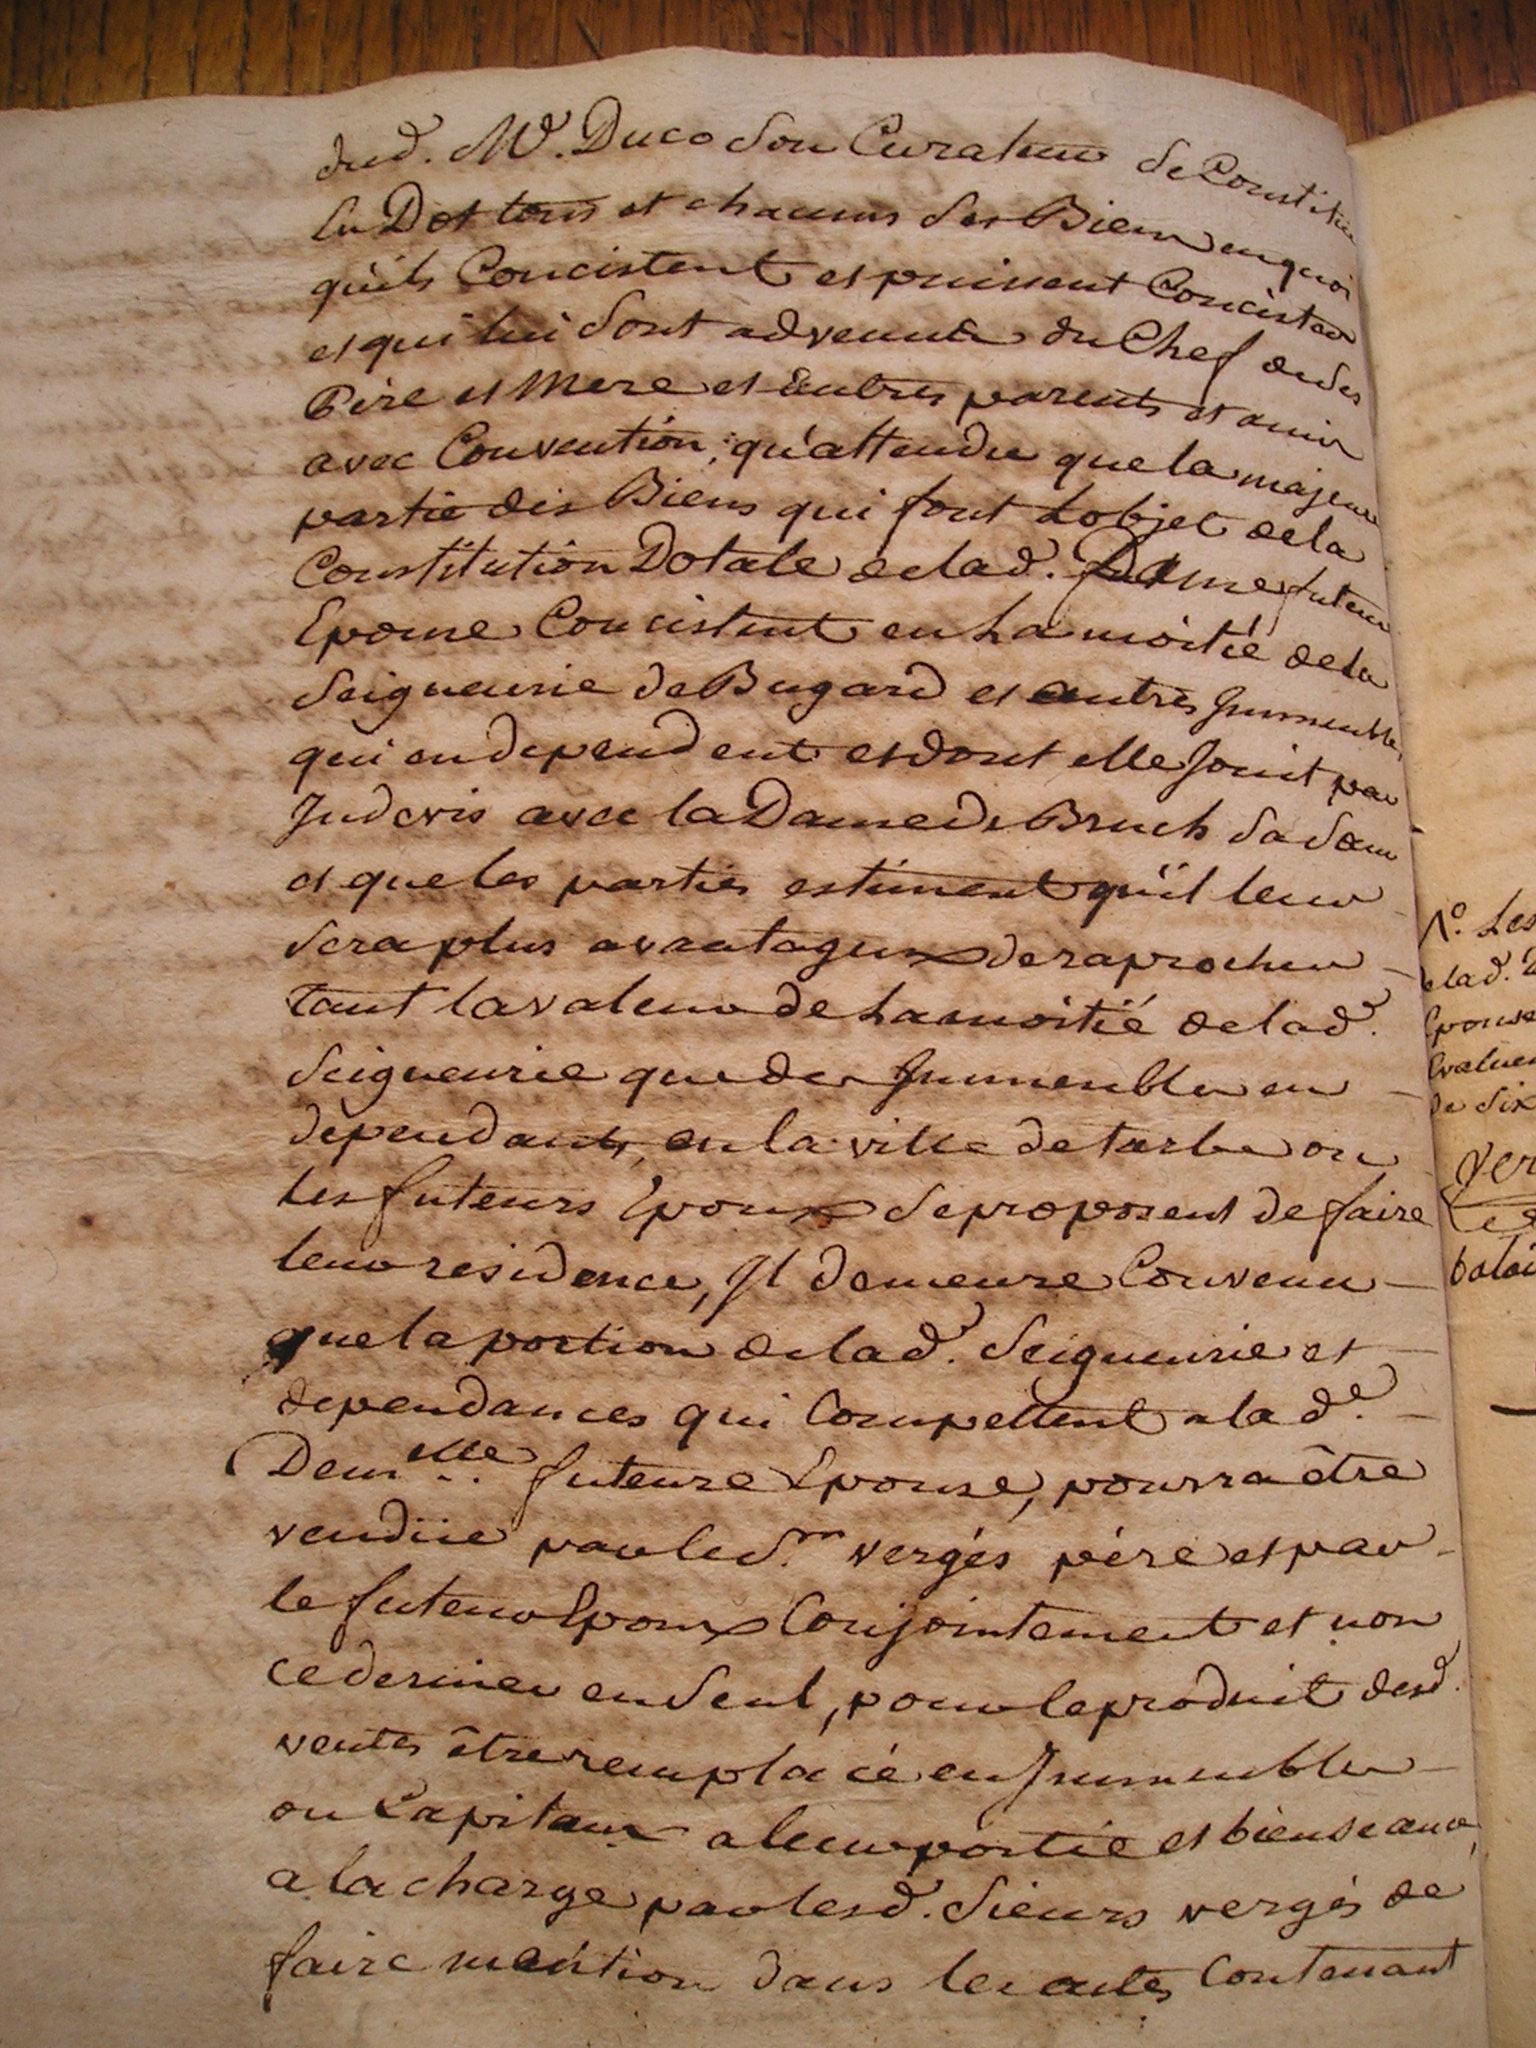 dud. Mr. Duco son Curateur se Constitue
en Dot tous et chacuns ses Biens en quoi
qu'ils Concistent et puissent Concister
et qui lui sont advenus du Chef de ses
Père et Mere et autres parents et amis
avec Convention, qu'attendu que la majeure
partie des Biens qui font Lobjet de la
Constitution Dotale de lad. Dame future
Epouse Concistent en La moitié de la
Seigneurie de Bugard et autres Immeubles
qui en dependent et dont elle Jouit par
Indevis avec la Dame de Bruch sa sœur
et que les parties estiment qu'il leur
sera plus avantageux de raprocher
tant la valeur de La moitié de lad.
Seigneurie que des Immeubles en
dependants, en la ville de tarbe ou
Les futeurs Epoux se proposent de faire
leur residence, Il demeure Convenu
que la portion de lad. Seigneurie et
dependances qui Compettent a lad.e
Demlle future Epouse, pourra être
vendüe par le Sr. vergés père et par
le futeur Epoux Conjointement et non
ce dernier en seul, pour le produit desd.
ventes être remplacé en Immeubles
ou Capitaux a leur portie et bienseance,
a la charge par lesd. Sieurs vergés de
faire mention dans les actes Contenant
No. Les
de lad. D
Epouse
Evaluer
de Six
Ver